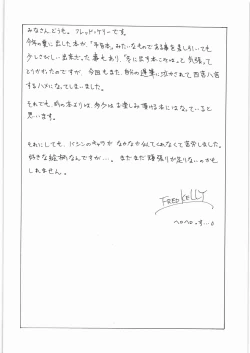 みなさんどうも。フレッド・ケリーです。
今年の夏に出した本が、「予告本」みたいなものである事を差し引いても
少しさびしい出来だった事もあり、「冬に出す本こそは」と気張って
とりかかったのですが、今回もまた、時の運に泣かされて四苦八苦
するハメになってしまいました。
それでも、前の本よりは、多少はお楽しみ頂ける本にはなっていると
思います。
それにしても、バシンのキャラがなかなか似てくれなくて苦労しました。
好きな絵柄なんですが…。まだまだ頑張りが足りないのかも
しれません。
FRED KELLY
ヘロヘロっす…。